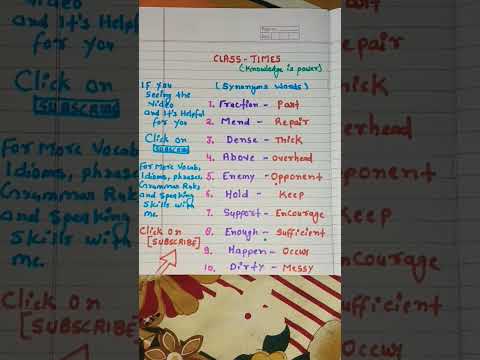 Video
and It's Helpf
for you
Click on
SUBSCRIBE
For More Vocab,
Idioms, phrases,
Grammar Rules
and Speaking
Skills with
me.
Click On
[SUBSCRIBE]
CLASS - TIMES
(Knowledge is power)
IF you
seeing the
Video
and It's Helpful
for you
Click on
SUBSCRIBE
For More Vocab,
Idioms, phrases,
Grammar Rules
and Speaking
Skills with
me.
Click On
[SUBSCRIBE]
(Synonyms Words)
1. Fraction - Part
2. Mend - Repair
3. Dense - Thick
4. Above - overhead
5. Enemy - Opponent
6. Hold - Keep
7. Support - Encourage
8. Enough - Sufficient
9. Happen - Occur
10. Dirty - Messy
power)
Repair
Thick
overhead
Opponent
Keep
Encourage
Sufficient
Occur